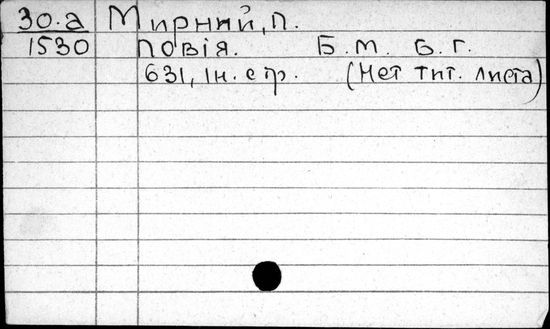 30.а Мирний, П.
1530 Повія. Б. М. Б. Г.
631, Iн. стр. (Нет тит. листа)